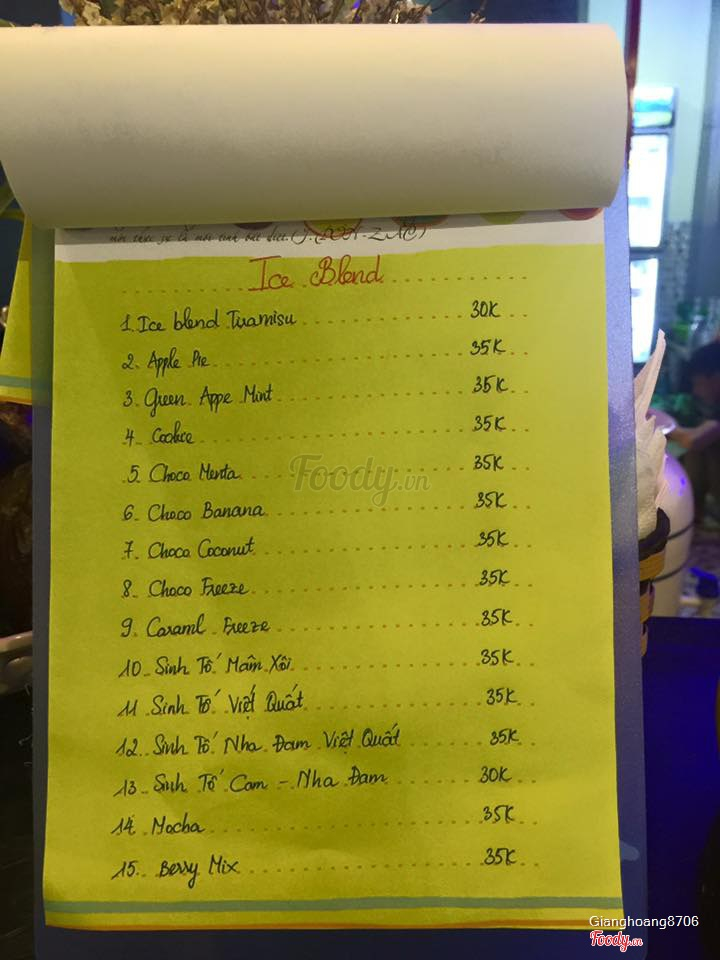 Ice Blend
1. Ice blend Tiramisu 30K
2. Apple Pie 35K
3. Green Appe Mint 35K
4 Cookie 35K
5. Choco Menta 35K
6 Choco Banana 35K
7. Choco Coconut 35K
8 Choco Freeze 35K
9. Caraml Freeze 35K
10 Sinh Tố Mâm Xôi 35K
11 Sinh Tố Việt Quất 35K
12 Sinh Tố Nha Đam Việt Quất 35K
13 Sinh Tố Cam - Nha Đam 30K
14 Mocha 35K
15. Berry Mix 35K
Foody.vn
Gianghoang8706
Foody.vn